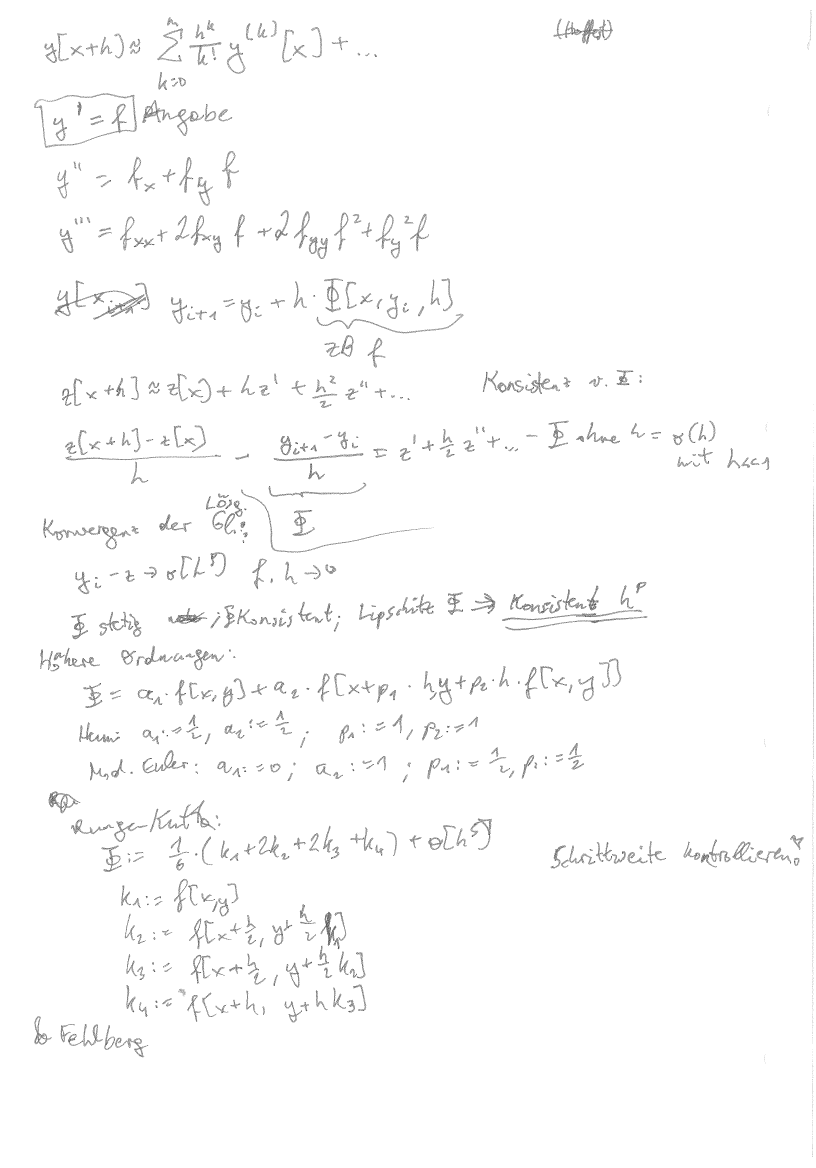 y[x+h] ≈ ∑_{k=0}^{n} h^k/k! y^(k) [x] + ...
y' = f Angabe
y'' = f_x + f_y f
y''' = f_xx + 2f_xy f + 2 f_yy f² + f_y² f
y_{i+1} = y_i + h · Φ[x, y_i, h]
zB f
z[x+h] ≈ z[x] + h z' + h²/2 z'' + ... Konsistenz v. Φ:
(z[x+h] - z[x])/h - (y_{i+1} - y_i)/h = z' + h/2 z'' + ... - Φ ohne h = σ(h)
mit h<<1
Φ
Konvergenz der Lösg. Gl.:
y_i - z → σ[h^p] f. h → 0
Φ stetig ; Φ Konsistent; Lipschitz Φ ⇒ Konsistent h^p
Höhere Ordnungen:
Φ = a_1 · f[x,y] + a_2 · f[x+p_1 · h, y+p_2 · h · f[x,y]]
Heun: a_1 := 1/2, a_2 := 1/2 ; p_1 := 1, p_2 := 1
Mod. Euler: a_1 := 0 ; a_2 := 1 ; p_1 := 1/2, p_2 := 1/2
Runge-Kutta:
Φ := 1/6 · (k_1 + 2k_2 + 2k_3 + k_4) + σ[h^5] Schrittweite kontrollieren
k_1 := f[x,y]
k_2 := f[x+h/2, y+h/2 k_1]
k_3 := f[x+h/2, y+h/2 k_2]
k_4 := f[x+h, y+h k_3]
Fehlberg